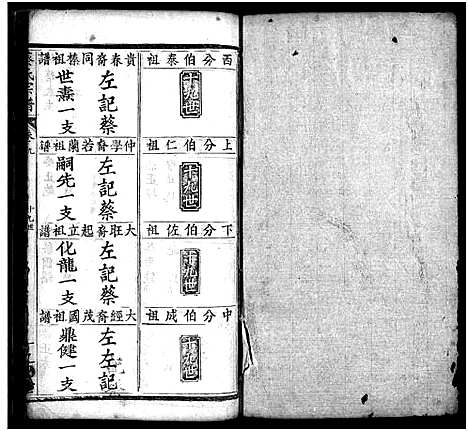 西分伯泰祖
十九世
貴春裔同榛祖譜
左記蔡
世燾一支
上分伯仁祖
十九世
仲學裔若蘭祖譜
左記蔡
嗣先一支
下分伯佐祖
十九世
大旺裔起立祖譜
左記蔡
化龍一支
中分伯成祖
十九世
大經裔茂國祖譜
左左記
鼎健一支
氏宗譜
十九世